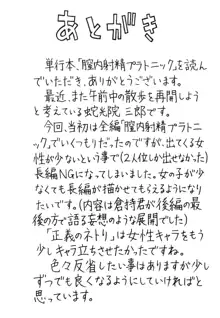 あとがき
単行本、「膣内射精プラトニック」を読ん
でいただき、ありがとうございます。
最近、また午前中の散歩を再開しよう
と考えている蛇光院 三郎です。
今回、当初は全編「膣内射精プラトニ
ック」でいくつもりだったのですが、出てくる女
性が少ないという事で(2人位しか出せなかった)
長編NGになってしまいました。女の子が少
なくても長編が描かせてもらえるようになり
たいです。(内容は倉持君が後編の最
後の方で語る妄想のような展開でした)
「正義のネトリ」は女性キャラをもう
少しキャラ立ちさせたかったですね。
色々反省したい事はありますが少し
ずつでも良くなるようにしていければと
思っています。